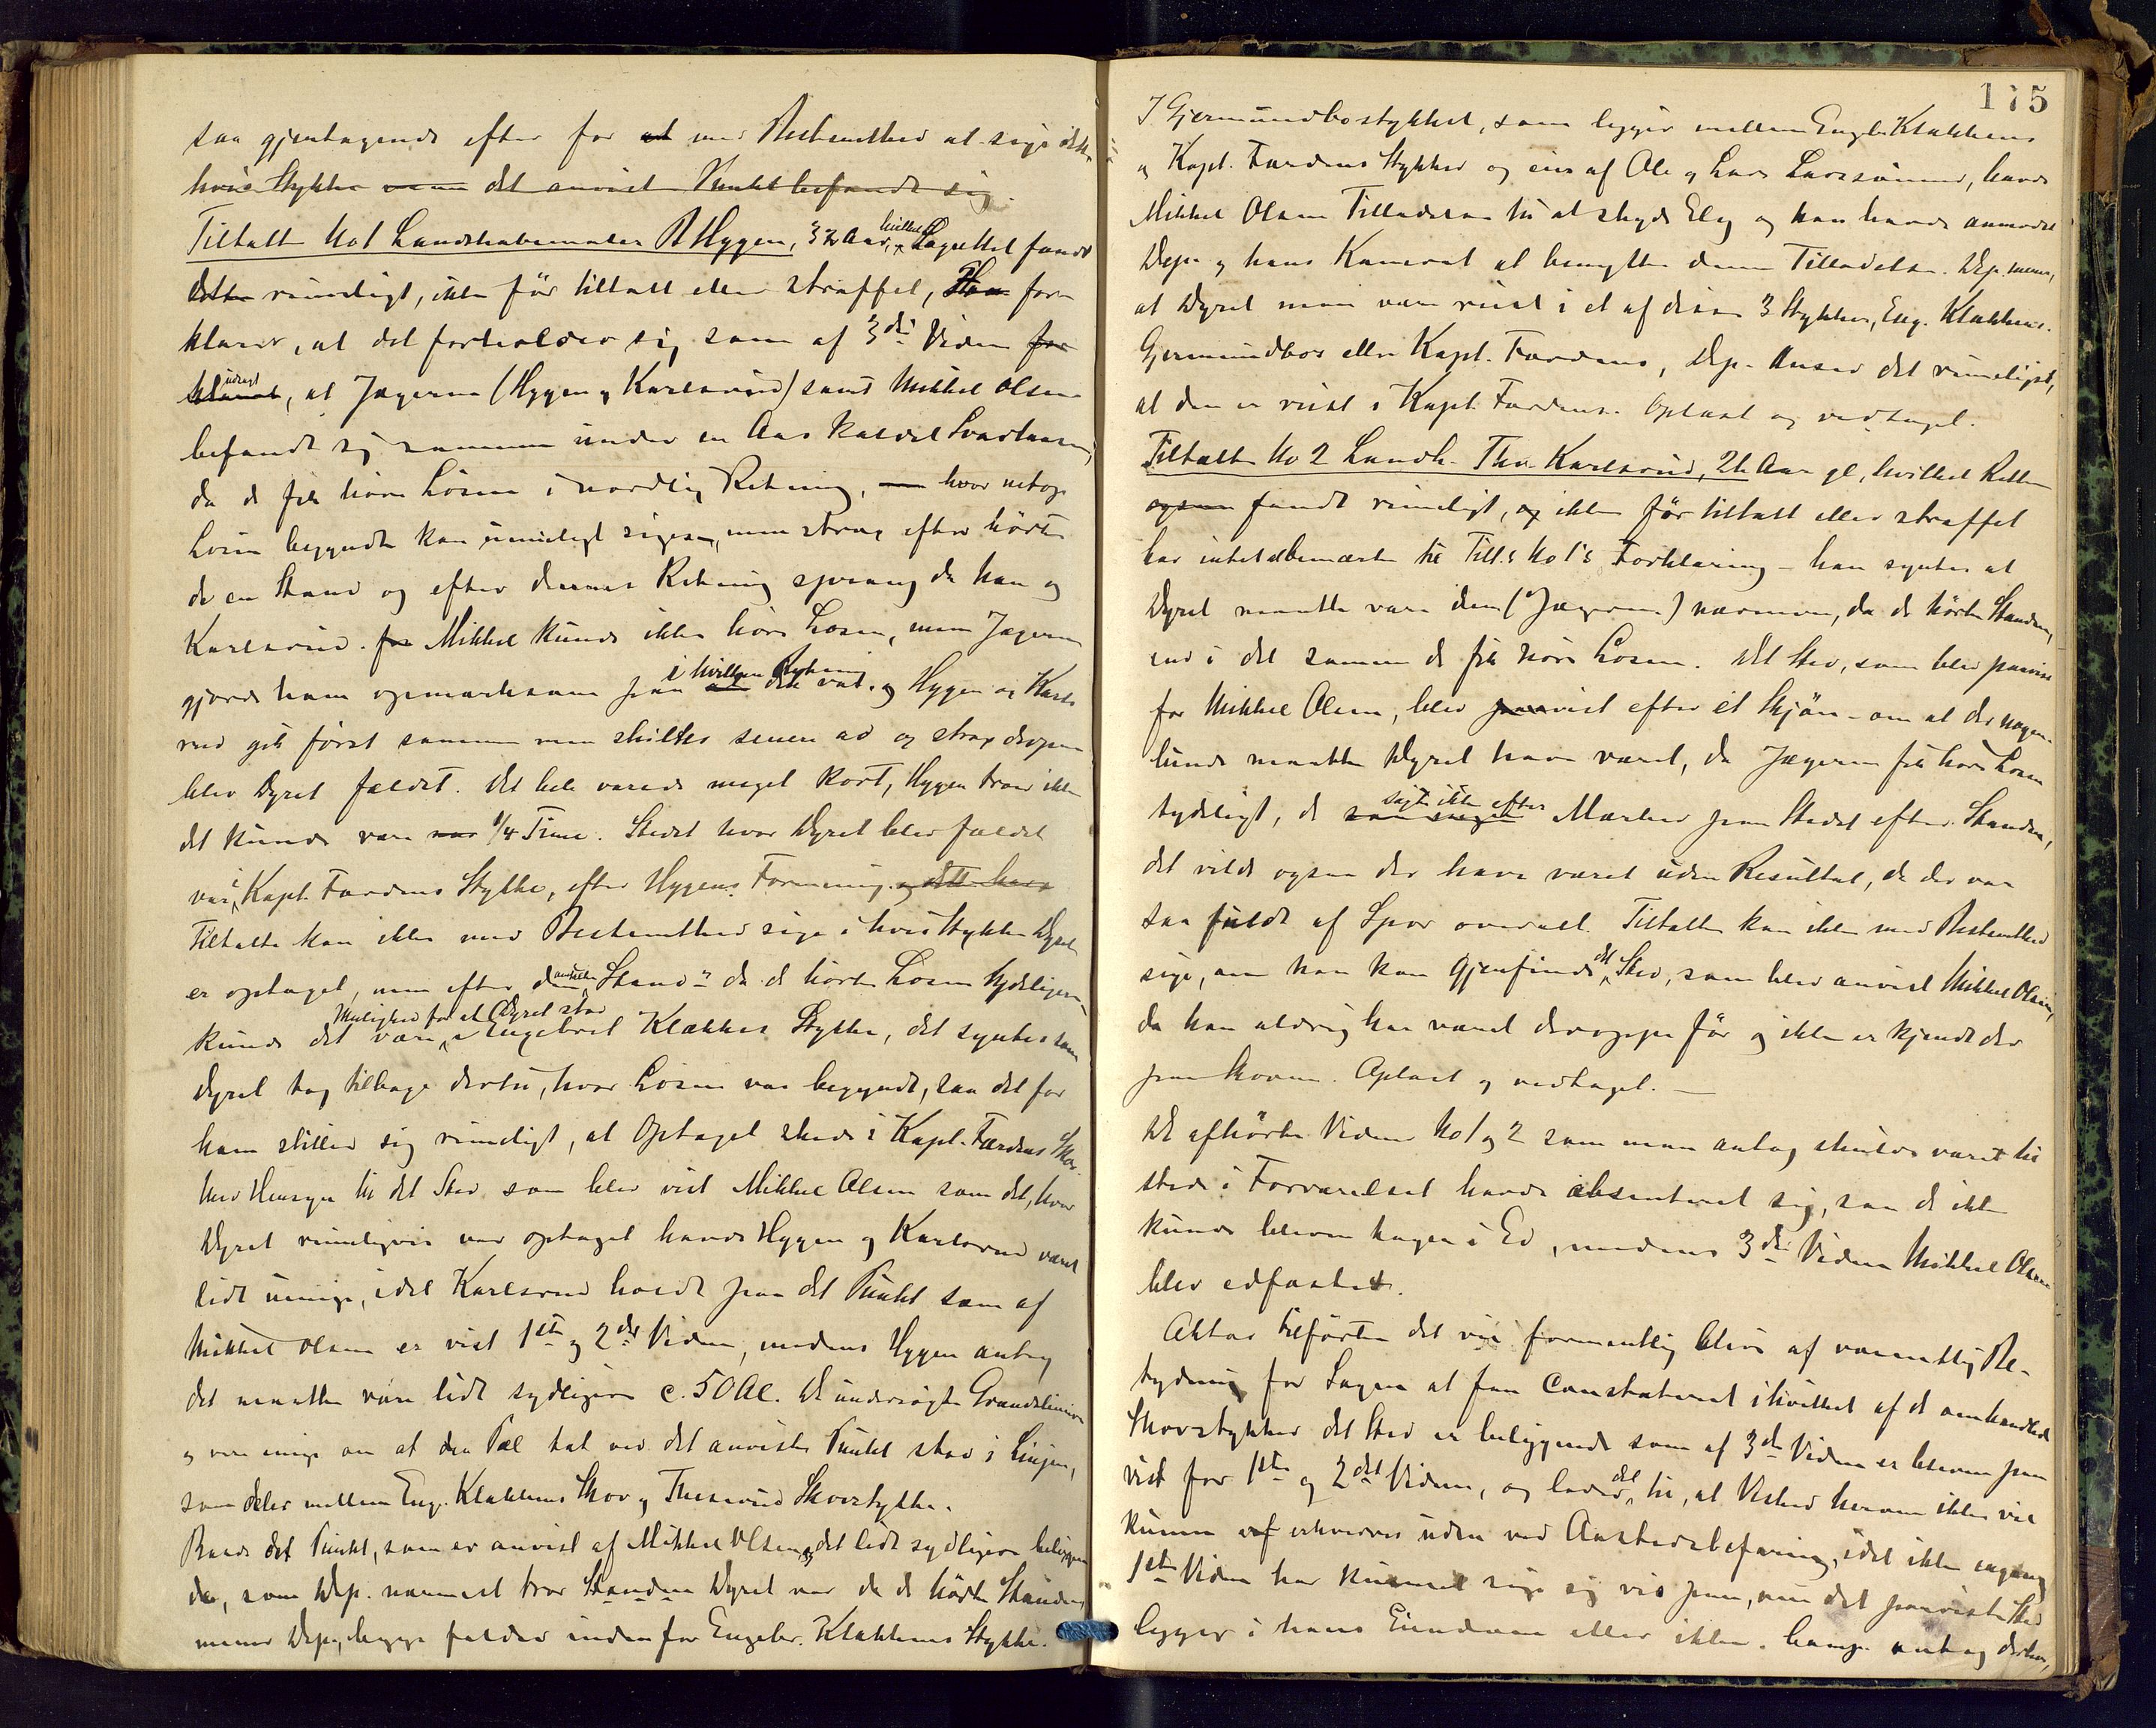 saa gjentagende efter for at med Bestemthed at sige dette,
hvis Stykke man det anviste Punkt befandt sig.
Tiltalte No 1 Landskabsmaler P Hygen, 32 Aar, hvilket Lagrettet fandt
dette rimeligt, ikke før tiltalt eller straffet, Han for-
klarer, at det forholder sig som af 3die Vidne for
klaret udsagt, at Jægerne (Hygen og Karlsrud) samt Mikkel Olsen
befandt sig sammen under en Aas kaldet Svartaasen,
da de fik høre Losen i nordlig Retning, hvor netop
Losen begyndte kan umuligt siges, men strax efter hørte
de en Stand og efter dennes Retning sprang da han og
Karlsrud. for Mikkel kunde ikke høre Losen, men Jægerne
gjorde ham opmærksom paa i hvilken Retning det var. og Hygen og Karls-
rud gik først sammen men skiltes senere ad og strax derpaa
blev Dyret fældet. Det hele varede meget kort, Hygen tror ikke
det kunde være 1/4 Time. Stedet hvor Dyret blev fældet
var i Kapt. Færdens Stykke, efter Hygens Formening. og dette
Tiltalte kan ikke med Bestemthed sige i hvis Stykke Dyret
er optaget, men efter den anden "Stand" da de hørte Losen tydeligere,
kunde det være Mulighed for at Dyret stod i Engebret Klækkes Stykke, det syntes som
Dyret tog tilbage dertil, hvor Losen var begyndt, saa det for
ham stiller sig rimeligt, at Optaget skede i Kapt. Færdens Skov.
Med Hensyn til det Sted som blev vist Mikkel Olsen som det, hvor
Dyret rimeligvis var optaget havde Hygen og Karlsrud været
lidt uenige, idet Karlsrud holdt paa det Punkt som af
Mikkel Olsen er vist 1ste og 2det Vidne, medens Hygen antog
det maatte være lidt sydligere c. 50 Al. De undersøgte Grændselinien
og var enige om at den Pæl tæt ved det anviste Punkt stod i Linjen,
som deler mellem Eng. Klækkens Skov og Skovstykke.
Baade det Punkt, som er anvist af Mikkel Olsen og det lidt sydligere beliggen-
de, som Dep. nærmest tror Standen Dyret var da de hørte Standen,
mener Dep. begge falder indenfor Engebr. Klækkens Stykke.
175
I Gjermundbostykket, som ligger mellem Engebr. Klækkens
og Kapt. Færdens Stykker og eies af Ole og Lars Larssønner, havde
Mikkel Olsen Tilladelse til at skyde Elg og han havde anmodet
Dep. og hans Kamerat at benytte denne Tilladelse. Dep. mener,
at Dyret maa være reist i et af disse 3 Stykker, Eng. Klækkens,
Gjermundbos eller Kapt. Færdens, Dep. Anser det rimeligst,
at den er reist i Kapt. Færdens. Oplæst og vedtaget.
Tiltalte No 2 Landh. Thv. Karlsrud, 26 Aar gl, hvilket Retten
ogsaa fandt rimeligt, og ikke før tiltalt eller straffet
har intet at bemærke til Tilt.s No 1's Forklaring – han syntes at
Dyret maatte være dem (Jægerne) nærmere, da de hørte Standen,
end i det samme de fik høre Losen. Det Sted, som blev paavist
for Mikkel Olsen, blev paavist efter et Skjøn – om at der nogen-
lunde maatte Dyret have været, da Jægerne fik høre Losen
tydeligt, de søgte ikke efter Mærker paa Stedet efter Standen,
det vilde ogsaa der have været uden Resultat, da der var
saa fuldt af Spor overalt. Tiltalte kan ikke med Bestemthed
sige, om han kan gjenfinde det Sted, som blev anvist Mikkel Olsen,
da han aldrig har været deroppe før og ikke er kjendt der
paa Skoven. Oplæst og vedtaget. –
De afhørte Vidner No 1 og 2 som man antog skulde været til
stede i Forværelset havde absenteret sig, saa de ikke
kunde bleven tagen i Ed, medens 3die Vidne Mikkel Olsen
blev edfæstet.
Aktor tilførte det vil formentlig blive af væsentlig Be-
tydning for Sagen at faa constateret i hvilket af de omhandlede
Skovstykker det Sted er beliggende som af 3die Vidne er bleven paa
vist for 1ste og 2det Vidne, og lader det til, at Vished herom ikke vil
kunne erhverves uden ved Aastedsbefaring, idet ikke engang
1ste Vidne har kunnet sige sig vis paa, om det paaviste Sted
ligger i hans Eiendom eller ikke. antog derhos,